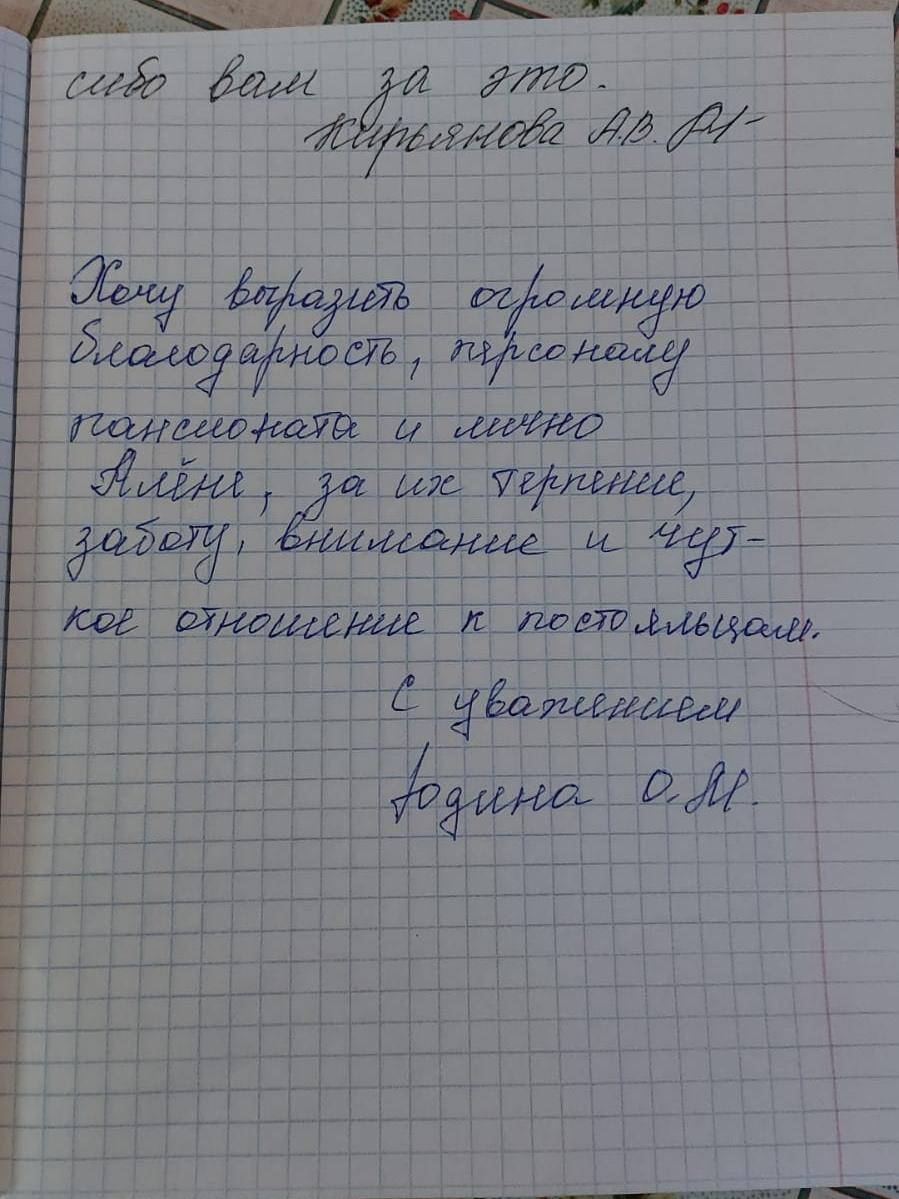 сибо вам за это.
Кирьянова А.В.
Хочу выразить огромную
благодарность, персоналу
пансионата и лично
Алёне, за их терпение,
заботу, внимание и чут-
кое отношение к постояльцам.
С уважением
Юдина О.М.